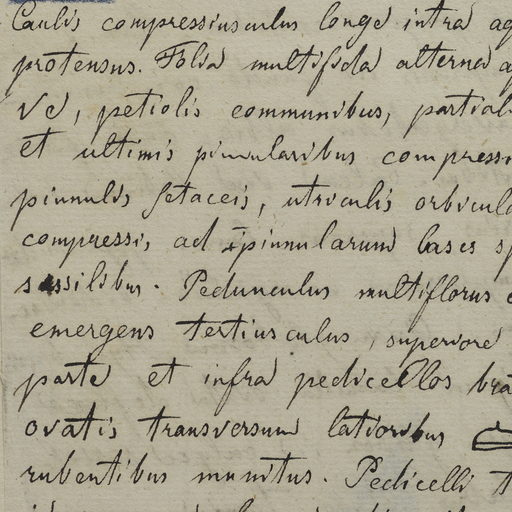 Caulis compressiusculus longe intra aq
protensus. Folia multifida alterna
ve, petiolis communibus, partial
et ultimis pinnularibus compressi
pinnulis setaceis, utriculis orbicula
compressis, ad pinnularum bases sp
sessilibus. Pedunculus multiflorus
emergens tertiusculus, superiore
parte et infra pedicellos bra
ovatis transversum latioribus
rubentibus munitus. Pedicelli